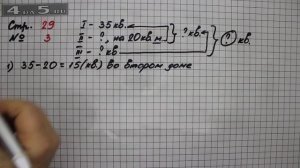 4x5.ru
Стр. 29 I - 35 кв.
№ 3 II - ?, на 20 кв. м. ? кв. ? кв.
III - ? кв
1) 35-20=15(кв.) во втором доме